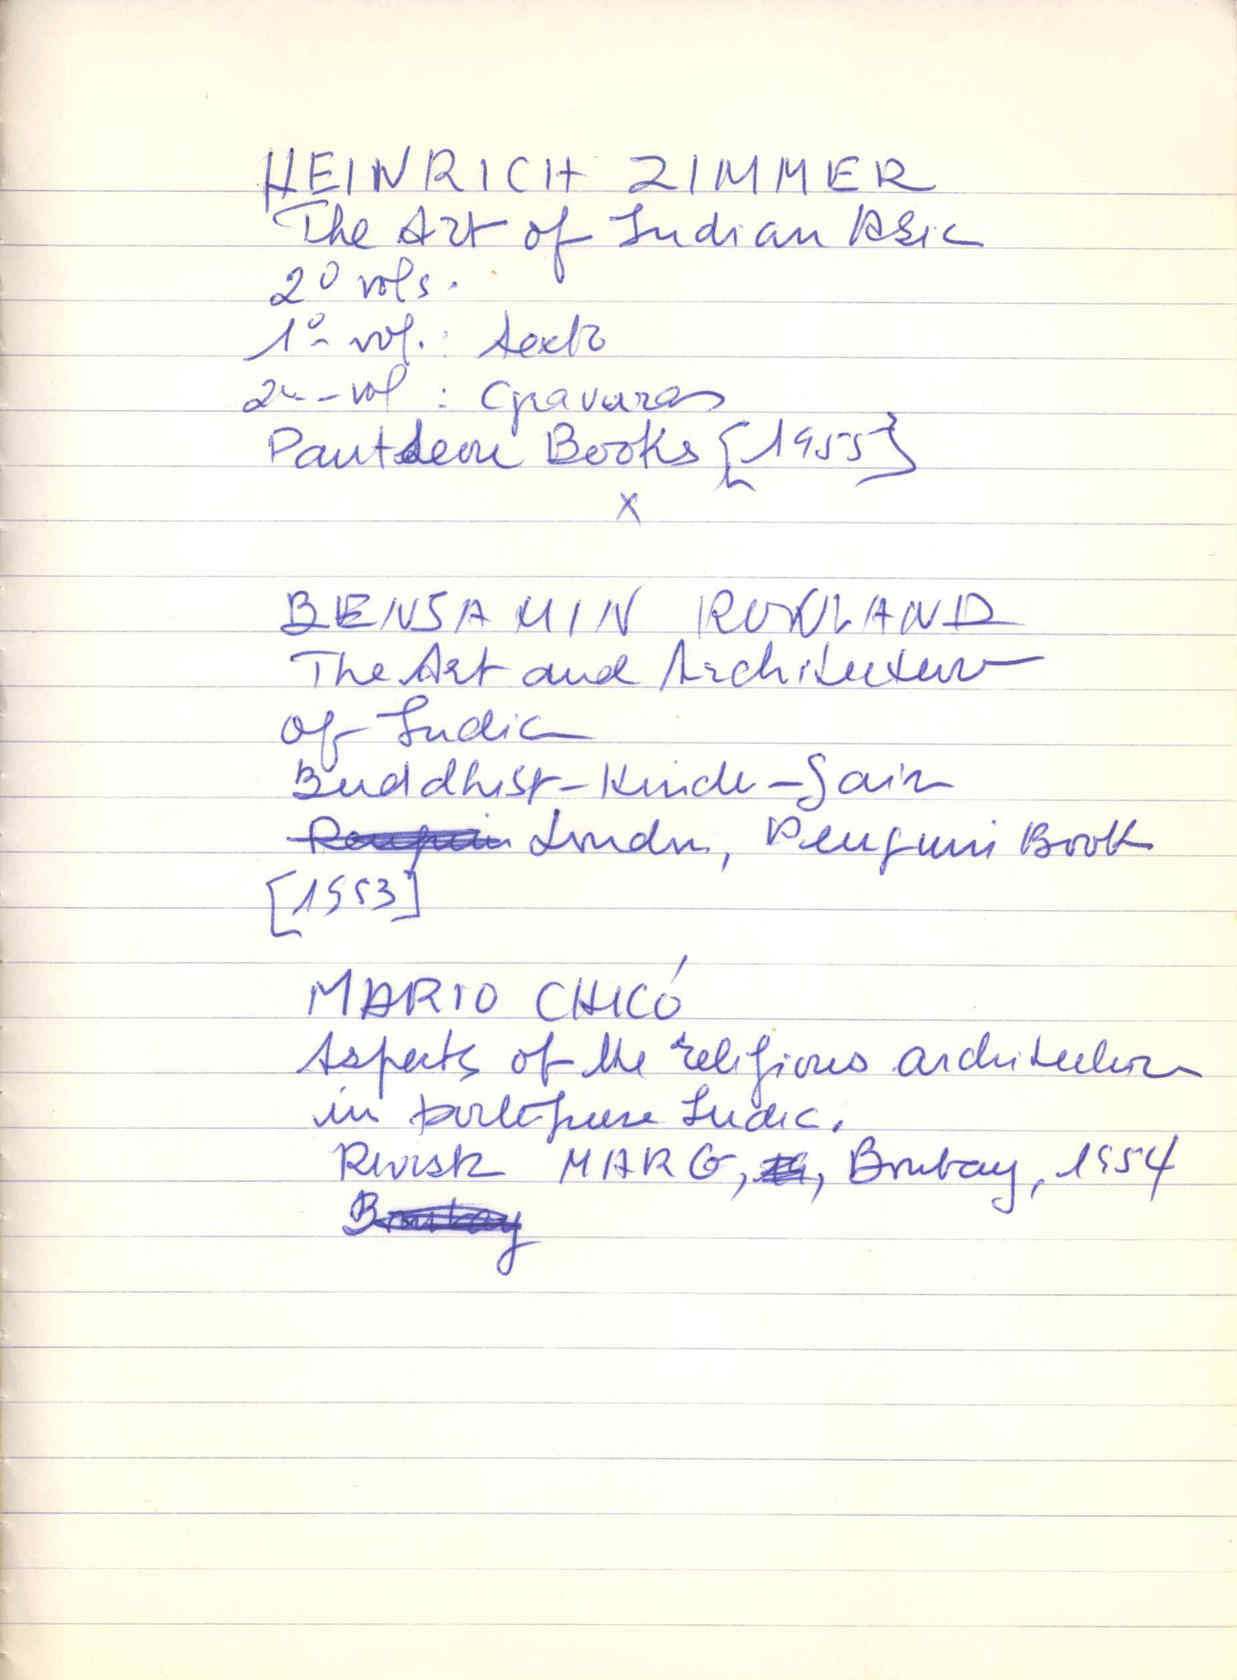 HEINRICH ZIMMER
The Art of Indian Asia
2º vols.
1º- vol. : texto
2º - vol : Gravuras
Pantheon Books [1955]
x
BENJAMIN ROWLAND
The Art and Architecture
of India
Buddhist - Hindu - Jain
Penguin London, Penguin Book
[1953]
MARIO CHICÓ
Aspects of the religious architecture
in portuguese India.
Revista MARG, , Bombay, 1954
Bombay